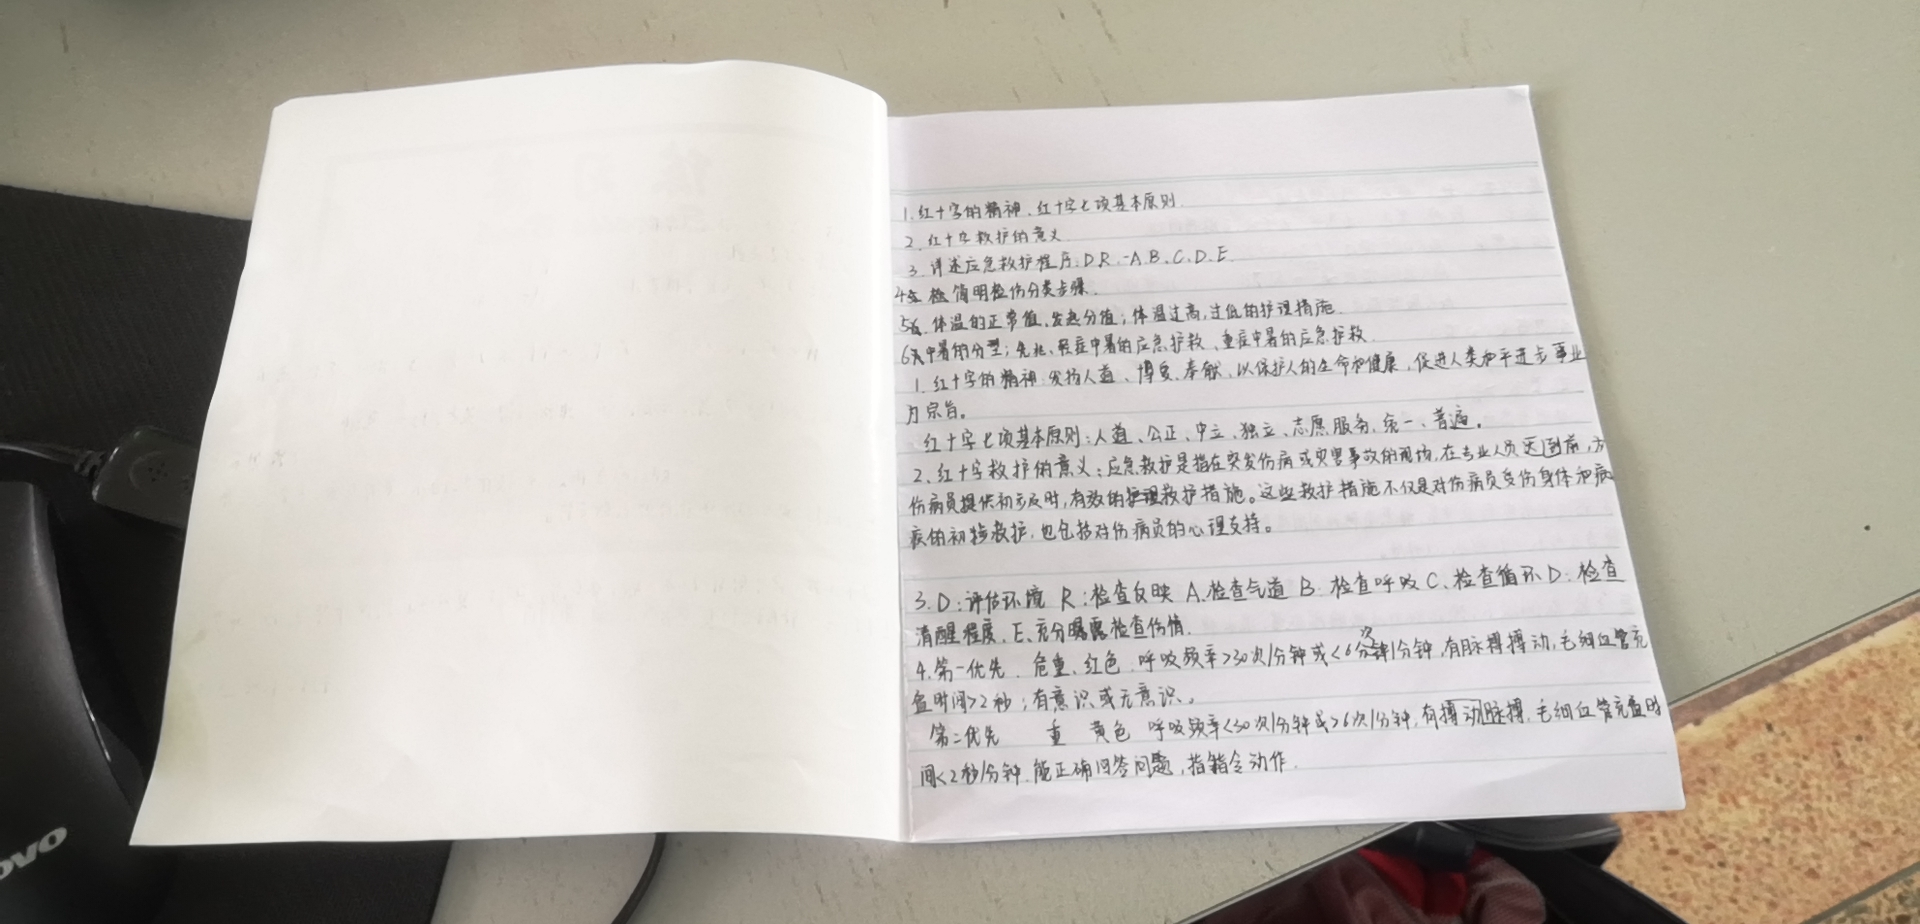 1.红十字的精神、红十字七项基本原则.
2.红十字救护的意义
3.详述应急救护程序:D.R.-A.B.C.D.E.
4 简明检伤分类步骤.
5 体温的正常值,发热分值;体温过高,过低的护理措施.
6 中暑的分型;先兆、轻症中暑的应急护救、重症中暑的应急护救.
1.红十字的精神:发扬人道、博爱、奉献、以保护人的生命和健康,促进人类和平进步事业
为宗旨。
红十字七项基本原则:人道、公正、中立、独立、志愿服务、统一、普遍。
2.红十字救护的意义:应急救护是指在突发伤病或灾害事故的现场,在专业人员 到前,为
伤病员提供初步及时,有效的 救护措施。这些救护措施不仅是对伤病员受伤身体和病
疾的初步救护,也包括对伤病员的心理支持。
3.D:评估环境 R:检查反映 A.检查气道 B:检查呼吸 C、检查循环 D:检查
清醒程度. E、充分曝露检查伤情.
4.第一优先. 危重、红色.呼吸频率>30次/分钟或<6次/分钟,有脉搏搏动,毛细血管充
盈时间>2秒;有意识或无意识。
第二优先 重 黄色 呼吸频率<30次/分钟或>6次/分钟,有搏动脉搏,毛细血管充盈时
间<2秒/分钟.能正确回答问题,指 令动作.
OVO